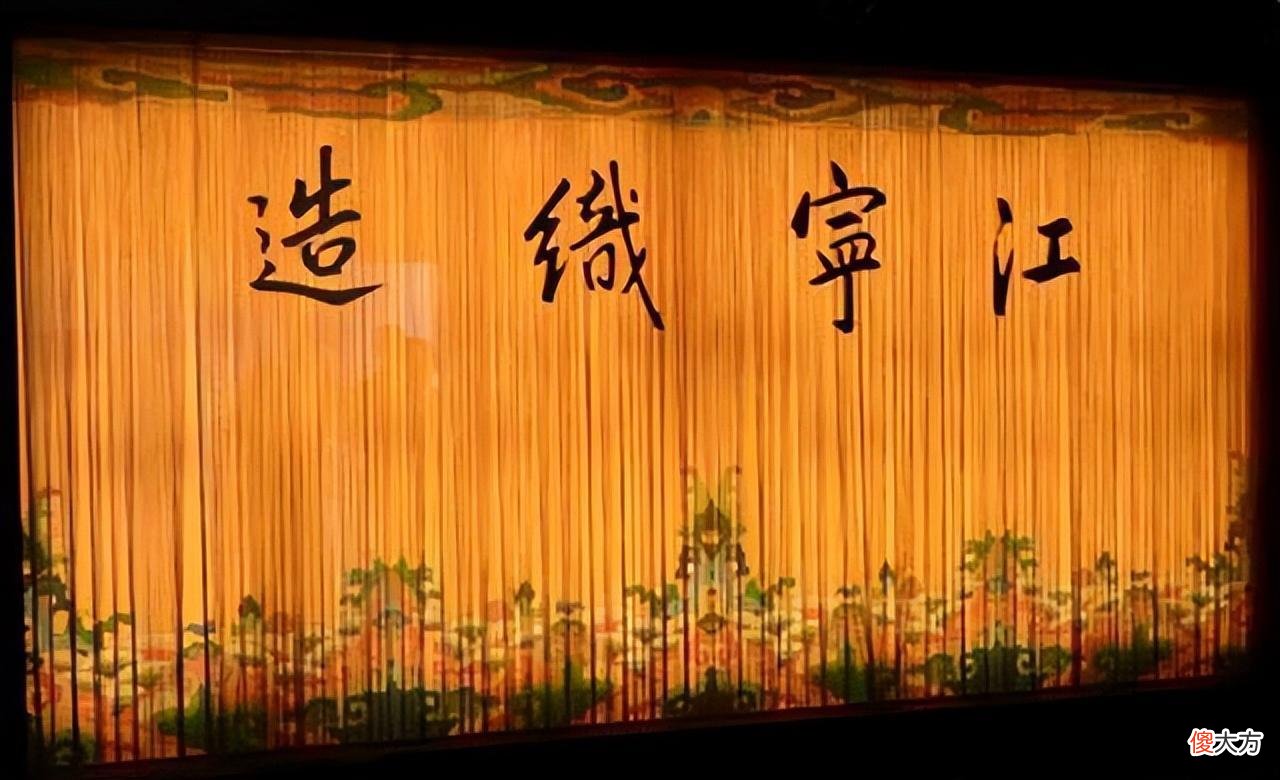 江寧織造
傻大方